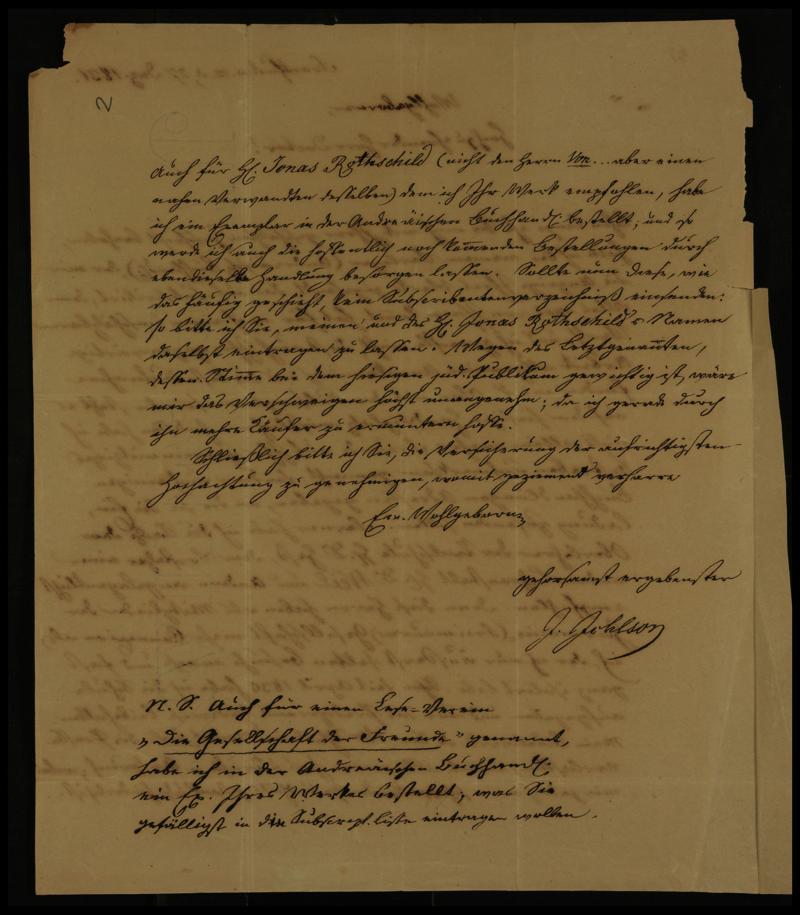 2
Auch für H. Jonas Rothschild (nicht den Herrn Von ... aber einen
nahen Verwandten desselben) dem ich Ihr Werk empfohlen, habe
ich ein Exemplar in der Andreäischen Buchhandl. bestellt; und so
werde ich auch die hoffentlich noch kommenden Bestellungen durch
ebendieselbe Handlung besorgen lassen. Sollte nun diese, wie
das häufig geschieht, kein Subscribentenverzeichniß einsenden:
so bitte ich Sie, meinen und des H. Jonas Rothschild's Namen
daselbst eintragen zu lassen. Wegen des Letztgenannten,
dessen Stimme bei dem hiesigen jüd. Publikum gewichtig ist, wäre
mir das Verschweigen höchst unangenehm; da ich gerade durch
ihn mehre Käufer zu ermuntern hoffe.
Schließlich bitte ich Sie, die Versicherung der aufrichtigsten
Hochachtung zu genehmigen, womit geziemend verharre
Ew. Wohlgeboren
gehorsamst ergebenster
J. Johlson
N. S. Auch für einen Lese-Verein
„Die Gesellschaft der Freunde" genannt,
habe ich in der Andreäischen Buchhandl.
ein Ex. Ihres Werkes bestellt; was Sie
gefälligst in die Subscript. liste eintragen wollen.